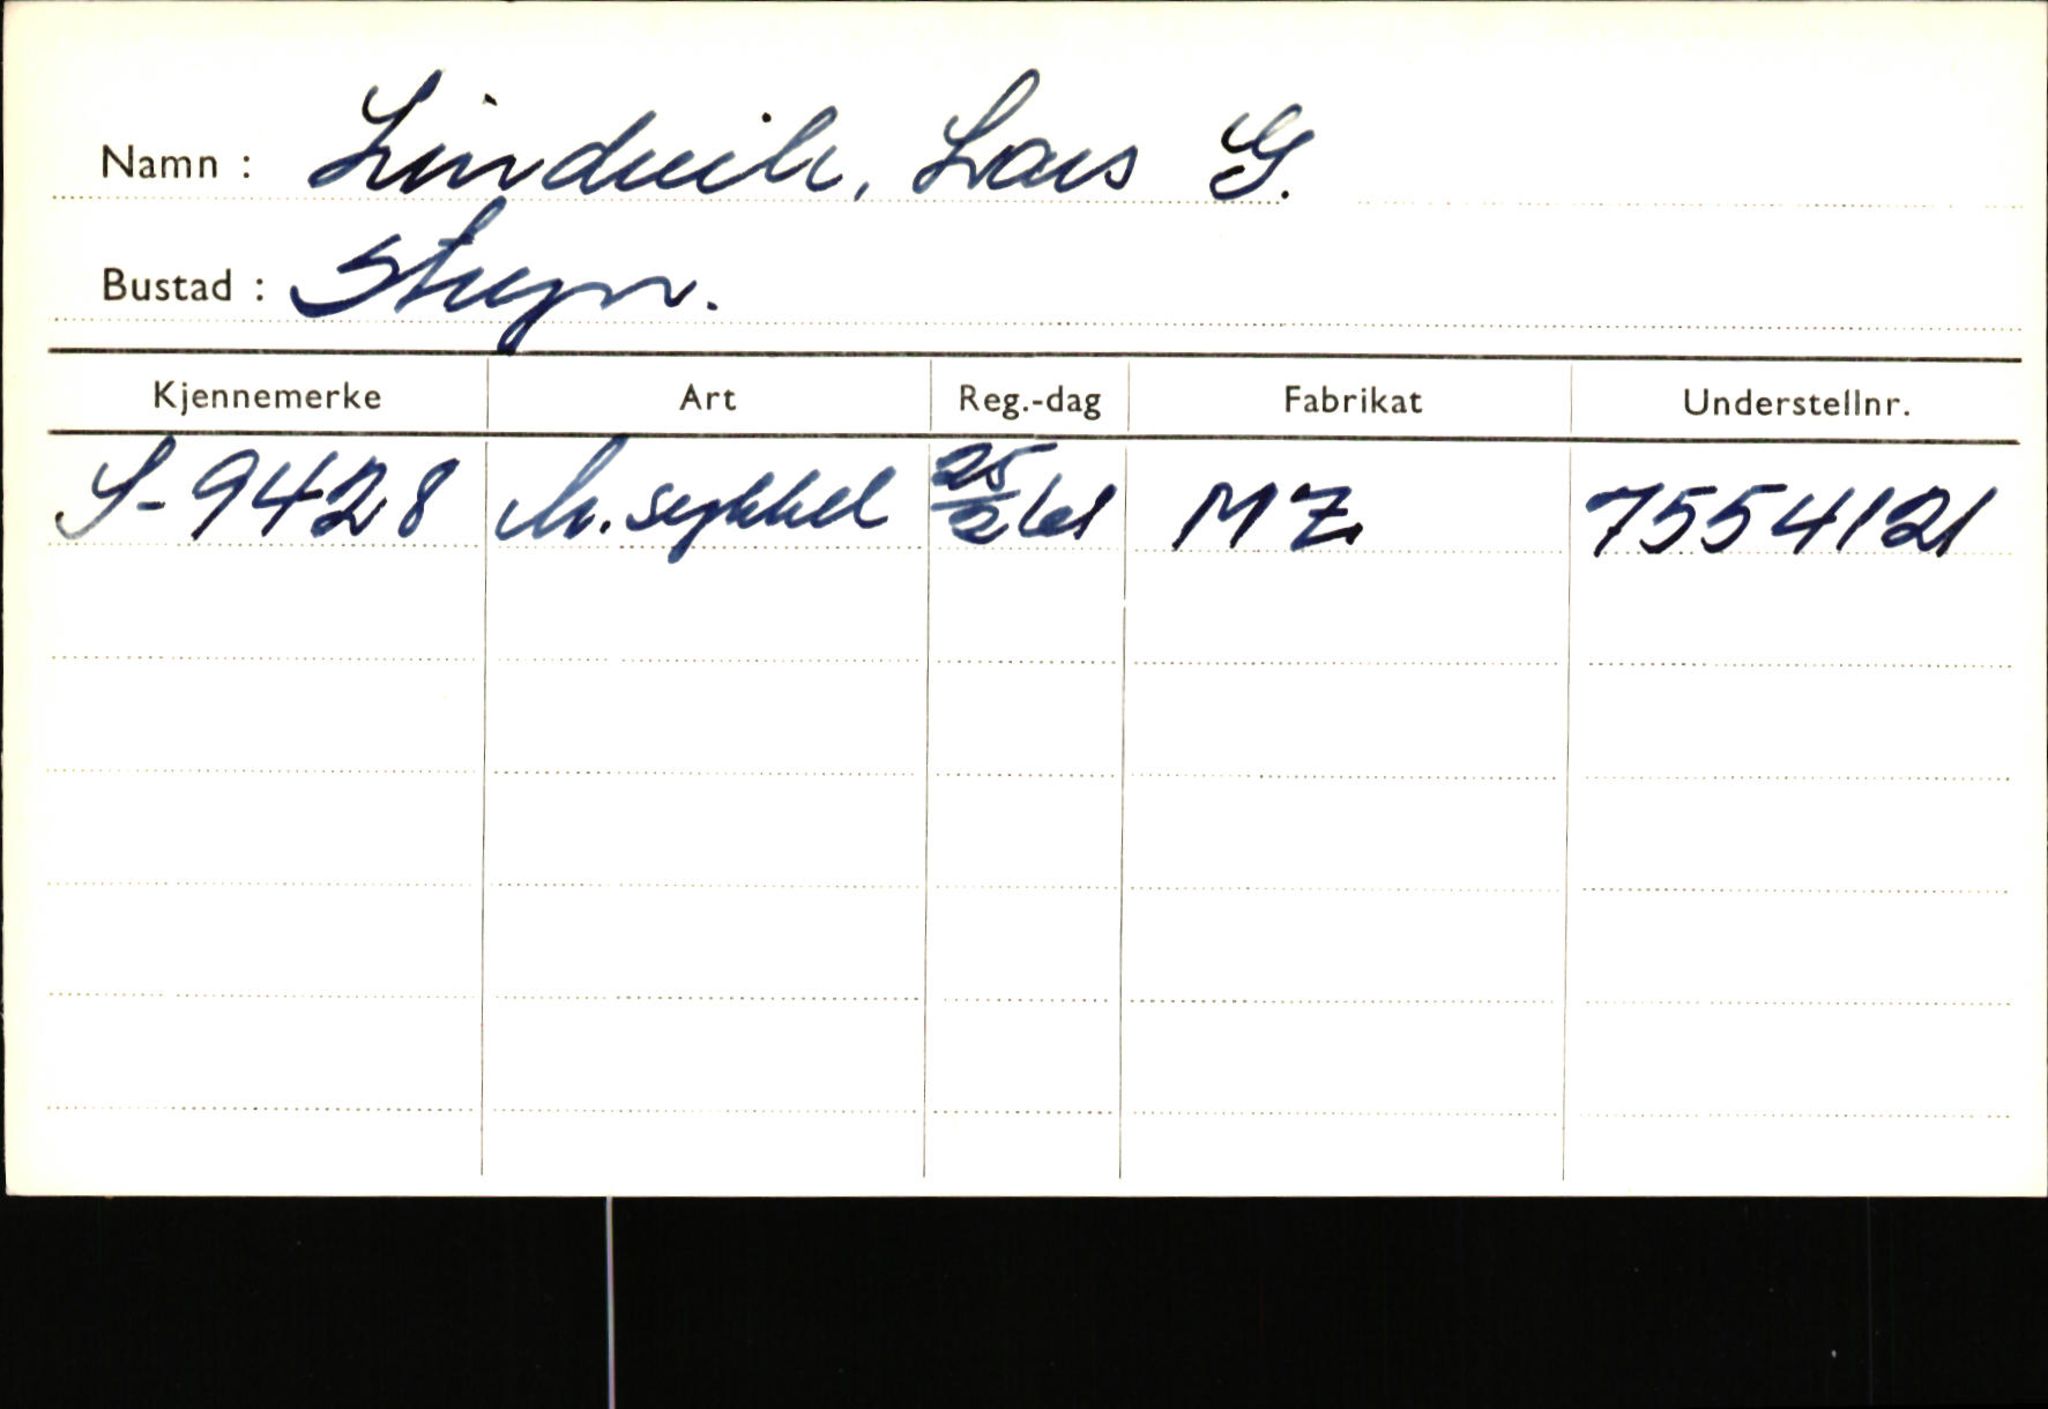 Namn : Lindvik, Lars G.
Bustad : Stryn.
Kjennemerke Art Reg.-dag Fabrikat Understellnr.
S-9428 M.sykkel 25/2 61 MZ 7554121